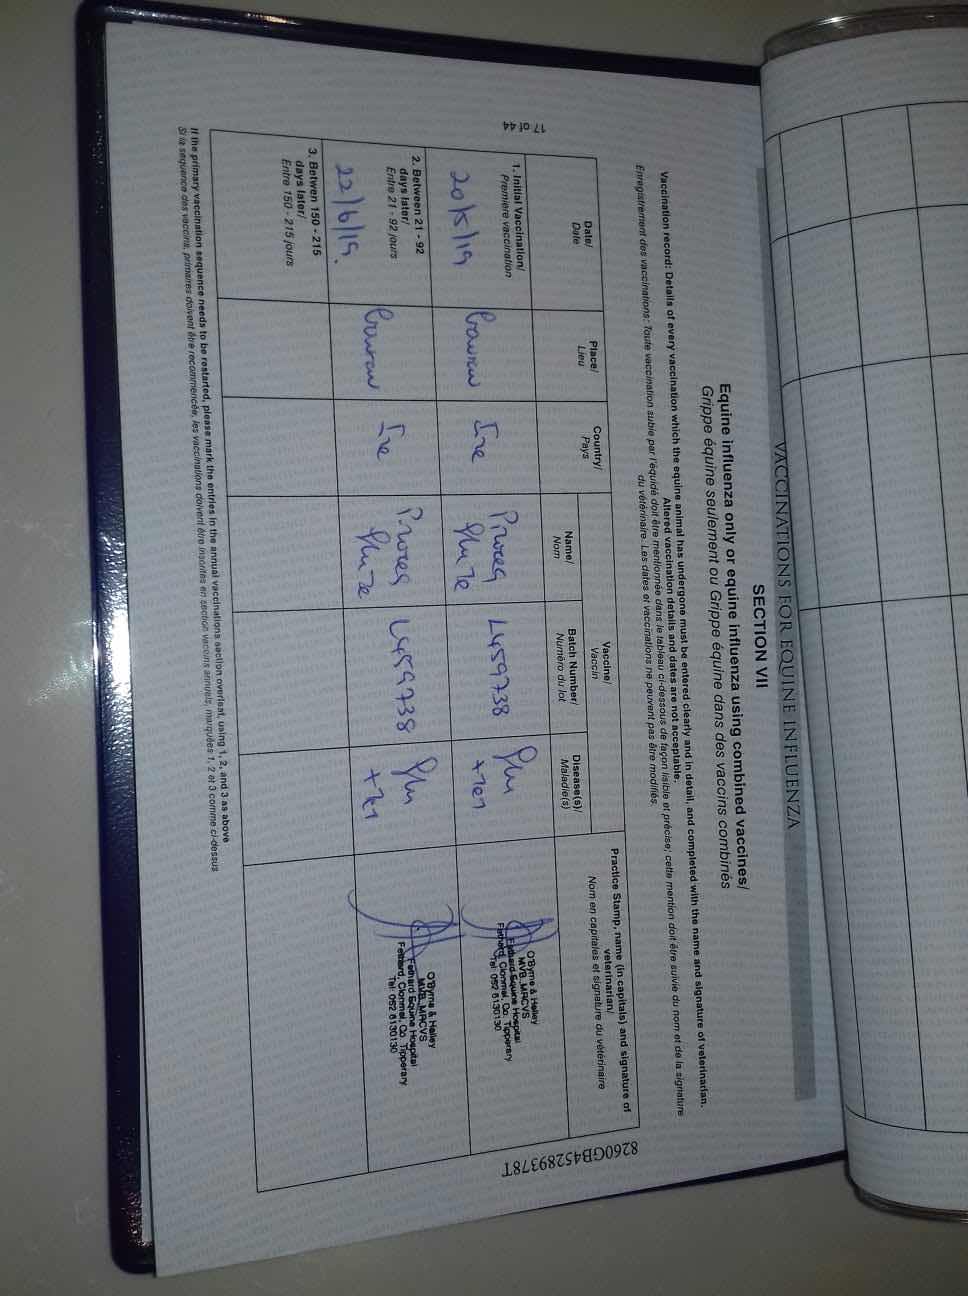 VACCINATIONS FOR EQUINE INFLUENZA
SECTION VII
Equine influenza only or equine influenza using combined vaccines/
Grippe équine seulement ou Grippe équine dans des vaccins combinés
Vaccination record: Details of every vaccination which the equine animal has undergone must be entered clearly and in detail, and completed with the name and signature of veterinarian.
Altered vaccination details and dates are not acceptable.
Enregistrement des vaccinations: Toute vaccination subie par l'équidé doit être mentionnée dans le tableau ci-dessous de façon lisible et précise; cette mention doit être suivie du nom et de la signature
du vétérinaire. Les dates et vaccinations ne peuvent pas être modifiés.
Date/
Date
Place/
Lieu
Country/
Pays
Vaccine/
Vaccin
Name/
Nom
Batch Number/
Numéro du lot
Disease(s)/
Maladie(s)
Practice Stamp, name (in capitals) and signature of
veterinarian/
Nom en capitales et signature du vétérinaire
1. Initial Vaccination/
Première vaccination
20/5/19
Ire
Proteq
Flu Te
L459738
Flu
+ Tet
O'Byrne & Halley
MVB, MRCVS
Fethard Equine Hospital
Fethard, Clonmel, Co. Tipperary
Tel: 052 6130130
2. Between 21 - 92
days later/
Entre 21 - 92 jours
22/6/19.
Ire
Proteq
Flu Te
L459738
Flu
+ Tet
O'Byrne & Halley
MVB, MRCVS
Fethard Equine Hospital
Fethard, Clonmel, Co. Tipperary
Tel: 052 6130130
3. Betwen 150 - 215
days later/
Entre 150 - 215 jours
If the primary vaccination sequence needs to be restarted, please mark the entries in the annual vaccinations section overleaf, using 1, 2, and 3 as above
Si la sequence des vaccins, primaires doivent être recommencée, les vaccinations doivent être inscrites en section vaccins annuels, marquées 1, 2 et 3 comme ci-dessus
17 of 44
8260GB45289378T